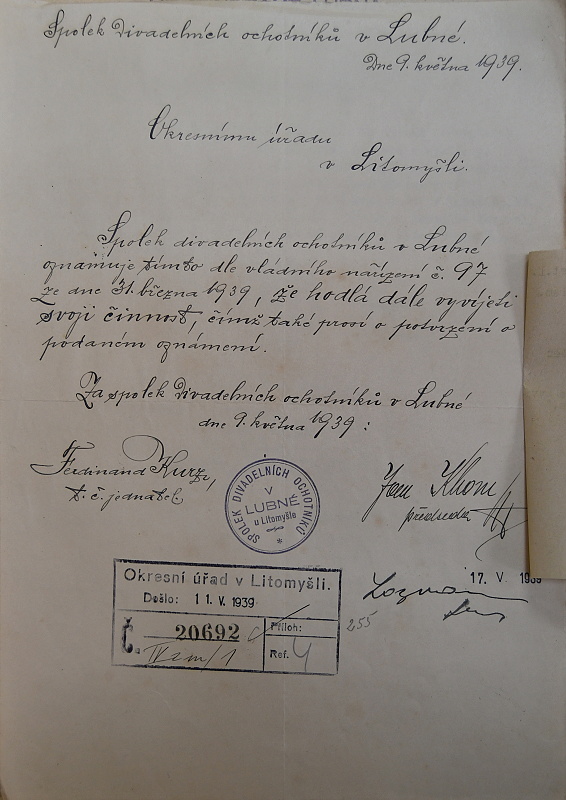 Spolek Divadelních ochotníků v Lubné.
Dne 9. května 1939.
Okresnímu úřadu
v Litomyšli.
Spolek divadelních ochotníků v Lubné
oznamuje tímto dle vládního nařízení č. 97
ze dne 31. března 1939, že hodlá dále vyvíjeti
svoji činnost, čímž také prosí o potvrzení o
podaném oznámení.
Za spolek Divadelních ochotníků v Lubné
dne 9. května 1939 :
Ferdinand Kurz,
t. č. jednatel
SPOLEK DIVADELNÍCH OCHOTNÍKŮ
V
LUBNÉ
u Litomyšle
Jan
předseda
Okresní úřad v Litomyšli.
Došlo: 11. V. 1939
Č. 20692
Příloh:
Ref. 4
255
17. V. 1939